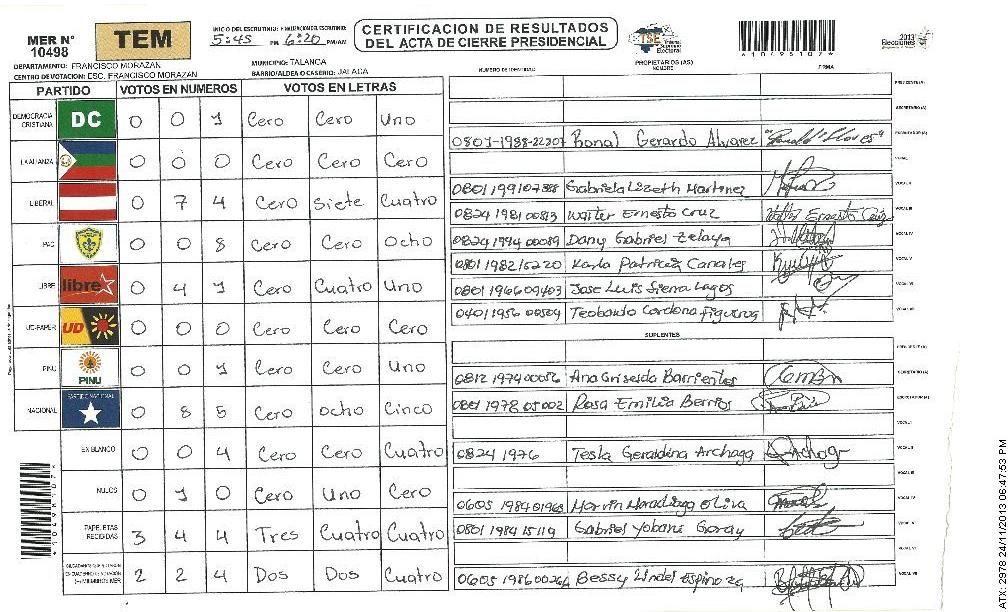 MER N° 10498
TEM
INICIO DEL ESCRUTINIO: FINALIZACION DEL ESCRUTINIO:
5:45 PM 6:20 PM/AM
CERTIFICACION DE RESULTADOS
DEL ACTA DE CIERRE PRESIDENCIAL
TSE Tribunal Supremo Electoral
2013 Elecciones
DEPARTAMENTO: FRANCISCO MORAZAN
MUNICIPIO: TALANGA
CENTRO DE VOTACION: ESC. FRANCISCO MORAZAN
BARRIO/ALDEA O CASERIO: JALACA
NUMERO DE IDENTIDAD
PROPIETARIOS (AS)
NOMBRE
FIRMA
PARTIDO VOTOS EN NUMEROS VOTOS EN LETRAS
DEMOCRACIA CRISTIANA DC 0 0 1 Cero Cero Uno
LA ALIANZA 0 0 0 Cero Cero Cero
LIBERAL 0 7 4 Cero Siete Cuatro
PAC 0 0 8 Cero Cero Ocho
LIBRE libre 0 4 1 Cero Cuatro Uno
UD-FAPER UD 0 0 0 Cero Cero Cero
PINU PINU 0 0 1 Cero Cero Uno
NACIONAL PARTIDO NACIONAL 0 8 5 Cero Ocho Cinco
EN BLANCO 0 0 4 Cero Cero Cuatro
NULOS 0 1 0 Cero Uno Cero
PAPELETAS RECIBIDAS 3 4 4 Tres Cuatro Cuatro
2 2 4 Dos Dos Cuatro
PRESIDENTE (A)
SECRETARIO (A)
0801-1988-22307 Ronal Gerardo Alvarez ESCRUTADOR (A)
VOCAL I
Gabriela Lizeth Martinez VOCAL II
0824 1981 00813 Walter Ernesto Cruz Walter Ernesto Cruz VOCAL III
0824 1994 00089 Dany Gabriel Zelaya VOCAL IV
0801 1982 15220 Karla Patricia Canales VOCAL V
0801 1966 09403 Jose Luis Sierra Lagos
0401 1956 00504 Teobardo Cardona Figueroa
SUPLENTES
PRESIDENTE (A)
0812 1974 00056 Ana Griselda Barrientos SECRETARIO (A)
0801 1978 05002 Rosa Emilia Berrios ESCRUTADOR (A)
VOCAL I
0824 1976 Tesla Geraldina Archaga VOCAL II
VOCAL III
0605 1984 01968 Marvin Maradiaga Oliva VOCAL IV
0801 1984 15119 Gabriel Yobani Garay VOCAL V
VOCAL VI
Bessy Lindel Espinoza VOCAL VII
ATX: 2978 24/11/2013 06:47:53 PM